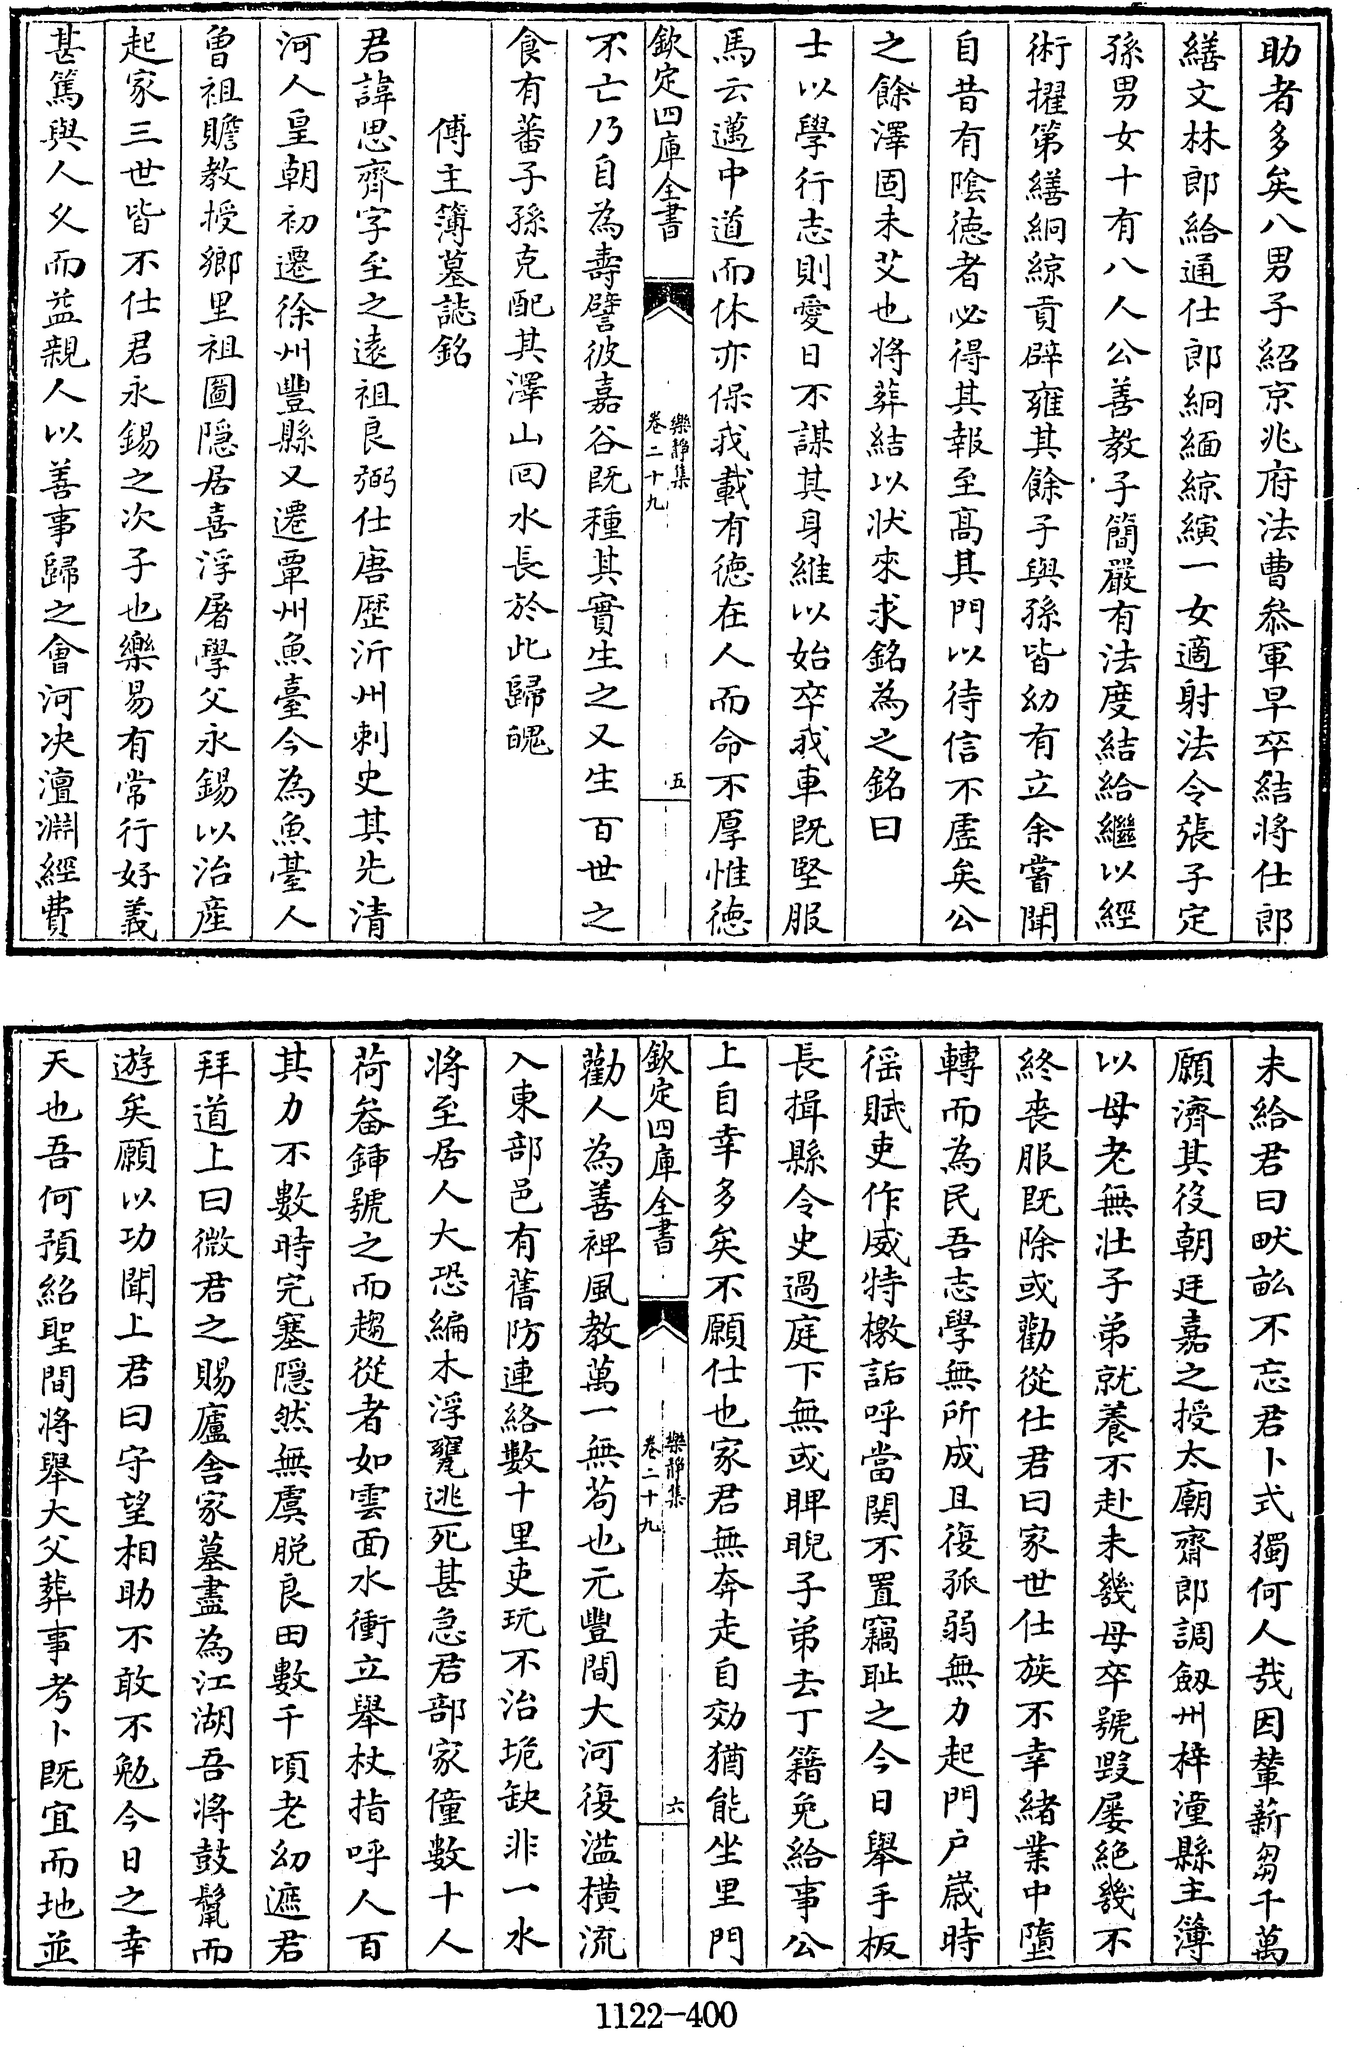 助者多矣八男子紹京兆府法曹叅軍早卒結將仕郎
繕文林郎給通仕郎絅緬綡縯一女適射法令張子定
孫男女十有八人公善教子簡嚴有法度結給繼以經
術擢第繕絅綡貢辟雍其餘子與孫皆幼有立余嘗聞
自昔有隂徳者必得其報至髙其門以待信不虛矣公
之餘澤固未艾也將葬結以狀來求銘為之銘曰
士以學行志則愛日不謀其身維以始卒我車既堅服
馬云邁中道而休亦保我載有徳在人而命不厚惟徳
欽定四庫全書
樂靜集
卷二十九
五
不亡乃自為壽譬彼嘉谷既種其實生之又生百世之
食有蕃子孫克配其澤山囘水長於此歸魄
傅主簿墓誌銘
君諱思齊字至之逺祖良弼仕唐歴沂州刺史其先清
河人皇朝初遷徐州豐縣又遷單州魚臺今為魚䑓人
曾祖贍教授鄉里祖圖隠居喜浮屠學父永錫以治産
起家三世皆不仕君永錫之次子也樂易有常行好義
甚篤與人乆而益親人以善事歸之會河决澶淵經費
未給君曰畎畝不忘君卜式獨何人㦲因輦薪芻千萬
願濟其役朝廷嘉之授太廟齋郎調劔州梓潼縣主簿
以母老無壯子弟就養不赴未幾母卒號毁屢絶幾不
終喪服既除或勸從仕君曰家世仕族不幸緒業中墮
轉而為民吾志學無所成且復孤弱無力起門户嵗時
徭賦吏作威特檄詬呼當関不置竊耻之今日舉手板
長揖縣令史過庭下無或睥睨子弟去丁籍免給事公
上自幸多矣不願仕也家君無奔走自効猶能坐里門
欽定四庫全書
樂靜集
卷二十九
六
勸人為善裨風教萬一無茍也元豐間大河復溢横流
入東部邑有舊防連絡數十里吏玩不治垝缺非一水
將至居人大恐編木浮甕逃死甚急君部家僮數十人
荷畚鍤號之而趨從者如雲面水衝立舉杖指呼人百
其力不數時完塞隠然無虞脱良田數千頃老幼遮君
拜道上曰微君之賜廬舍家墓盡為江湖吾將鼓鬣而
遊矣願以功聞上君曰守望相助不敢不勉今日之幸
天也吾何預紹聖間將舉大父葬事考卜既宜而地並
1122-400